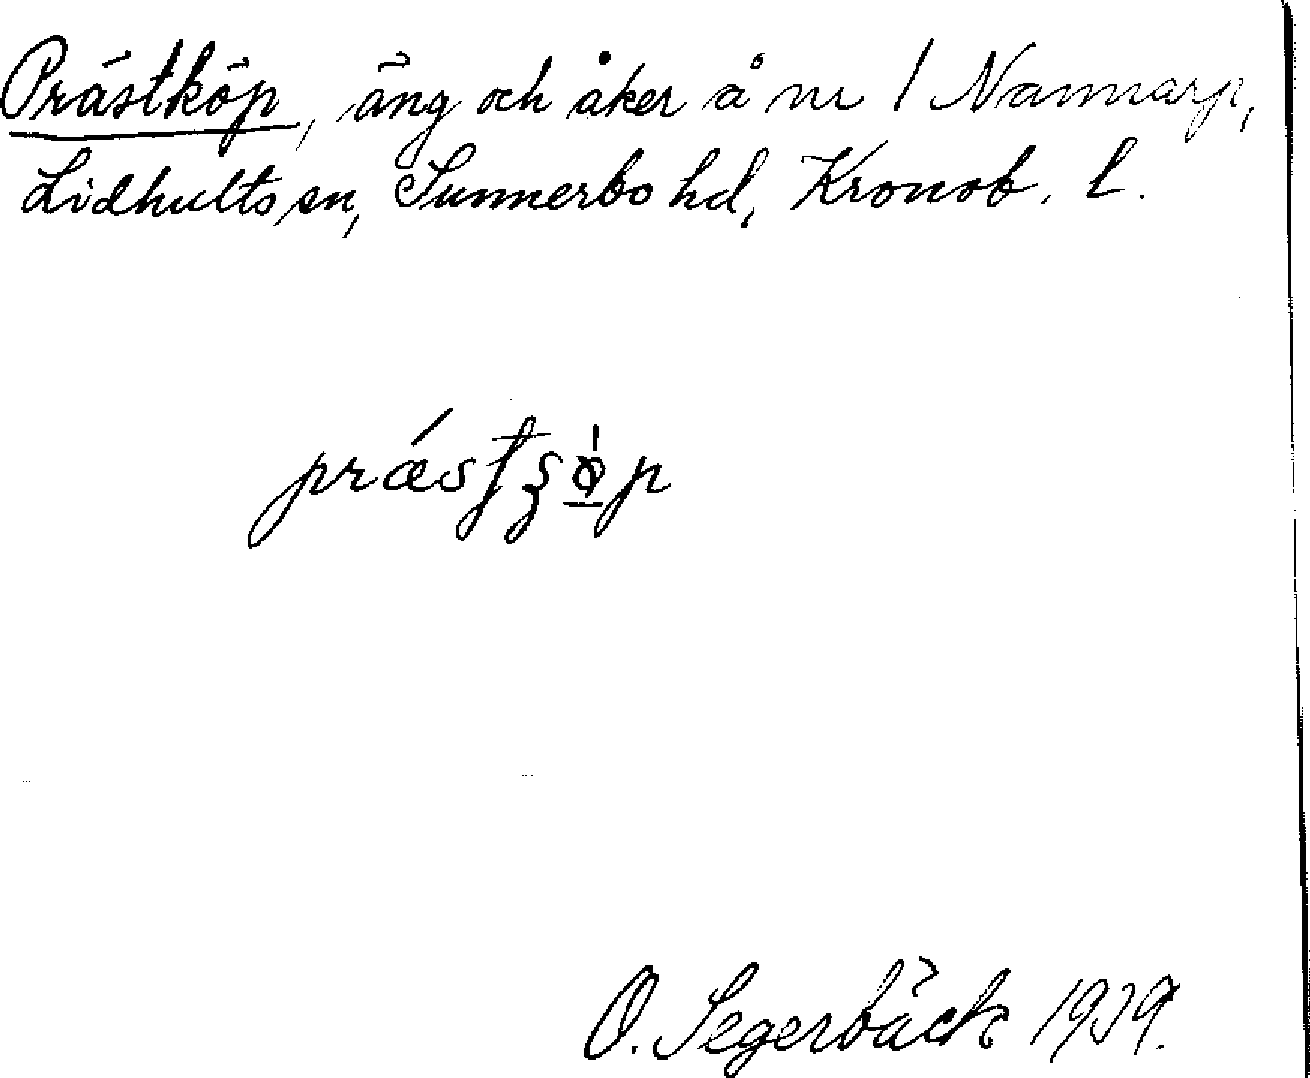 Prästköp, äng och åker å nr 1 Nannarp,
Lidhults sn, Sunnerbo hd, Kronob. l.
O. Segerbäck 1939.